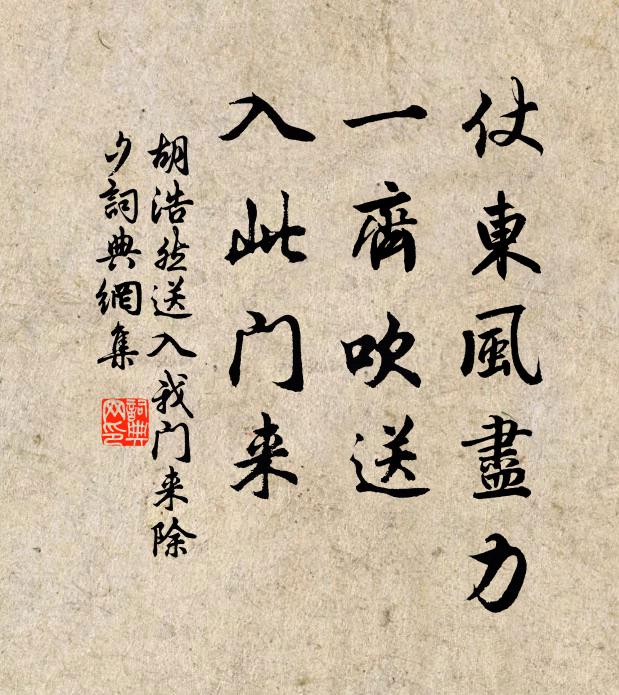 仗東風盡力
一齊吹送
入此门来
胡浩然送入我门来除
夕詞典網集
詞典网印